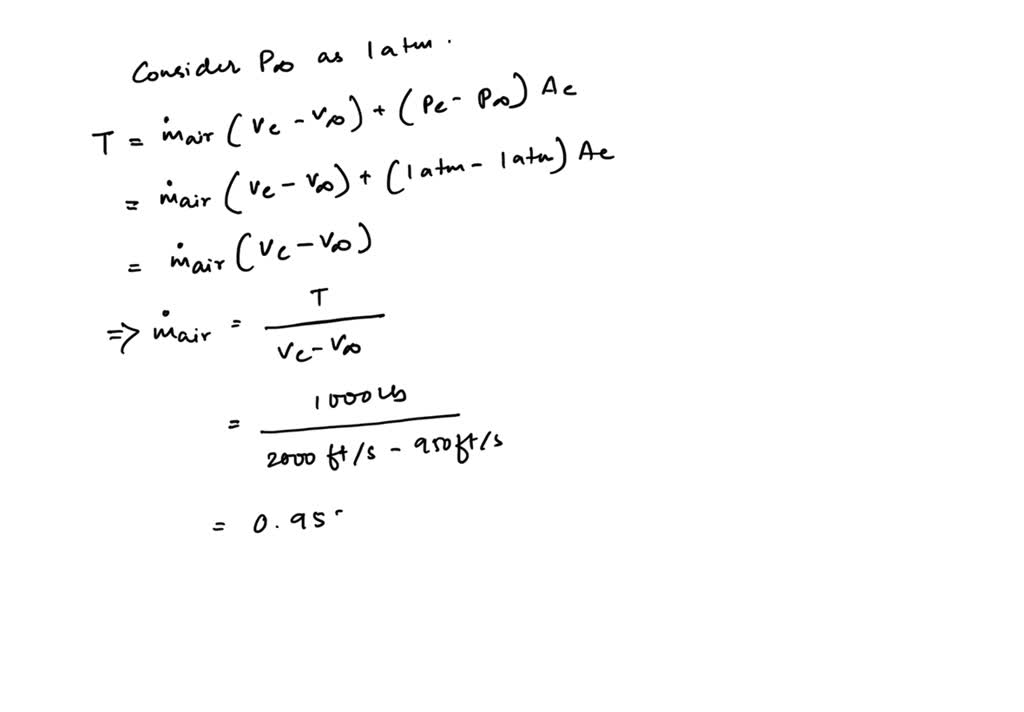 Consider P∞ as 1 atm.
T = ṁair (Ve - V∞) + (Pe - P∞) Ae
= ṁair (Ve - V∞) + (1 atm - 1 atm) Ae
= ṁair (Ve - V∞)
=> ṁair = T / Ve - V∞
= 1000 lb / 2000 ft/s - 950 ft/s
= 0.95